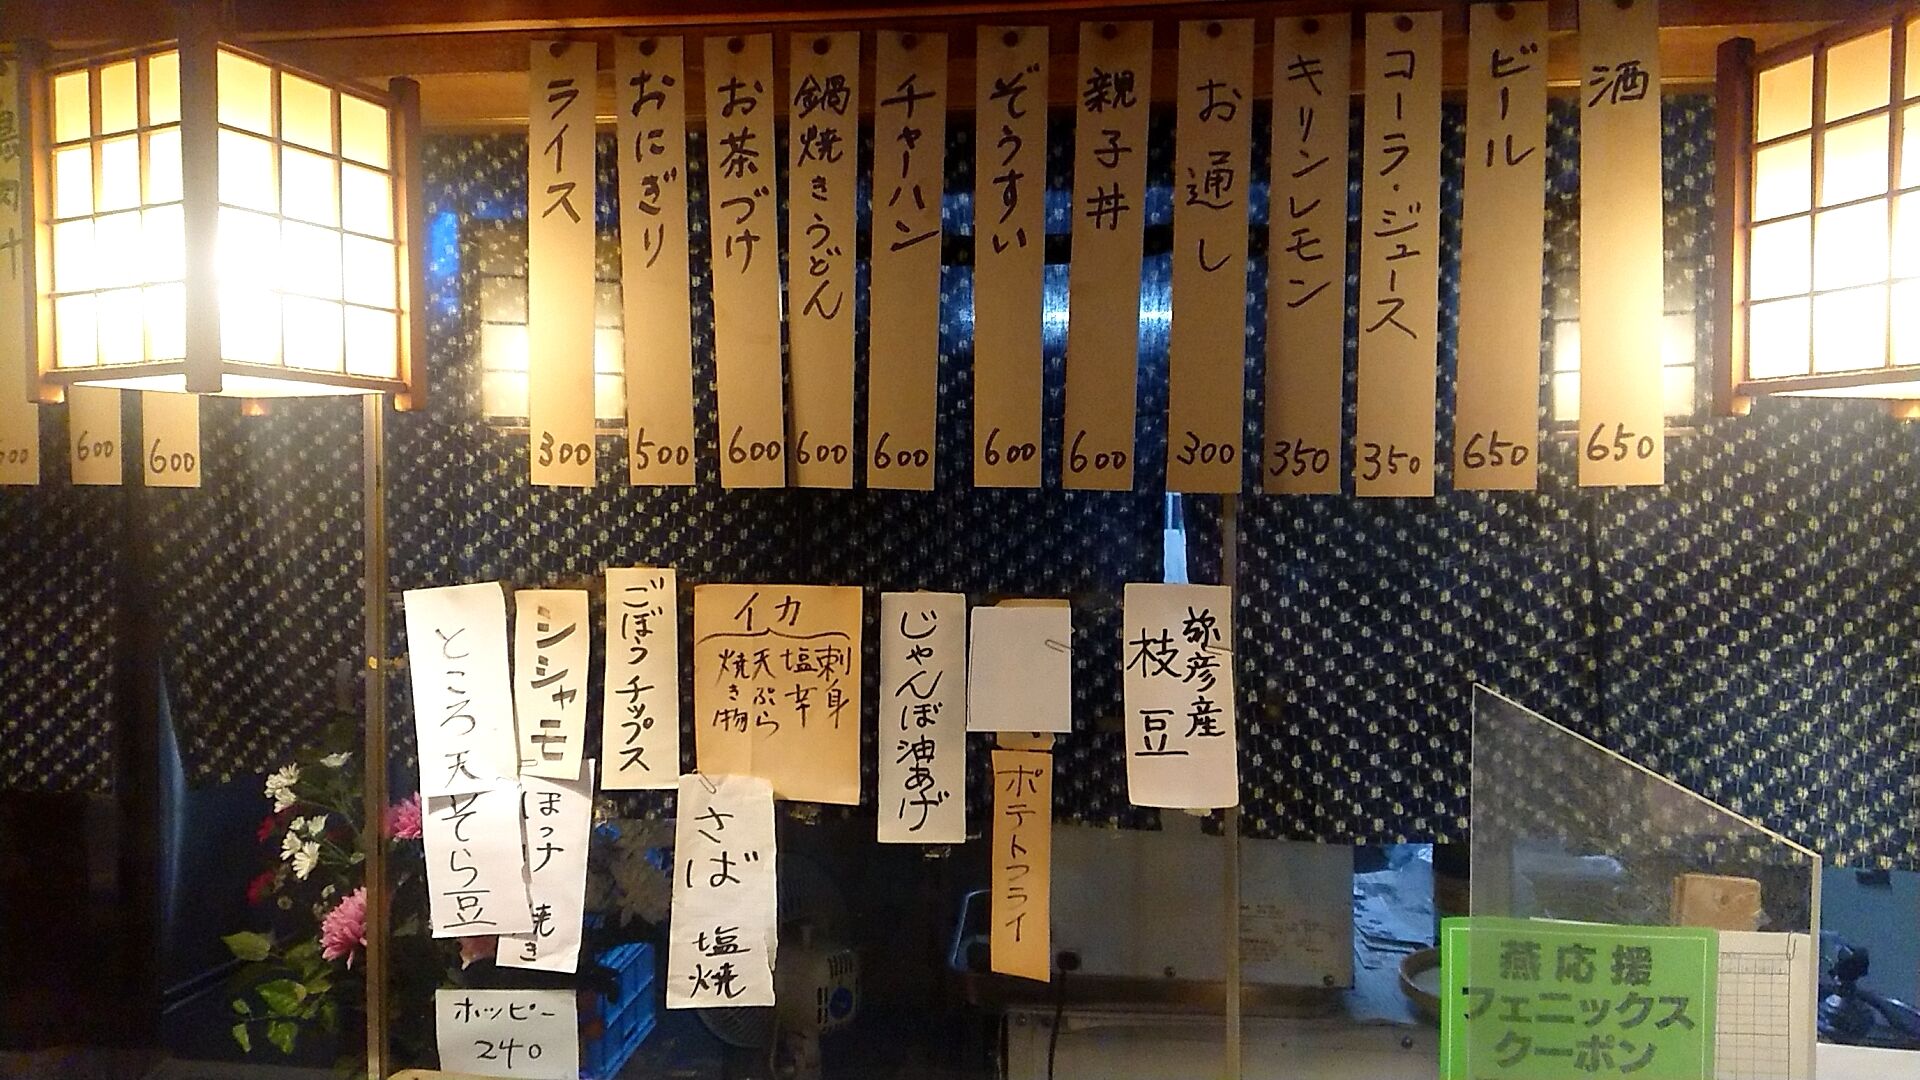 酒
650
ビール
650
コーラ・ジュース
350
キリンレモン
350
お通し
300
親子丼
600
ぞうすい
600
チャーハン
600
鍋焼きうどん
600
お茶づけ
600
おにぎり
500
ライス
300
600
600
弥彦産
枝豆
ポテトフライ
じゃんぼ油あげ
イカ
刺身
塩辛
天ぷら
焼き物
さば 塩焼
ごぼうチップス
シシャモ
ところ天
そら豆
ホッピー
240
燕応援
フェニックス
クーポン